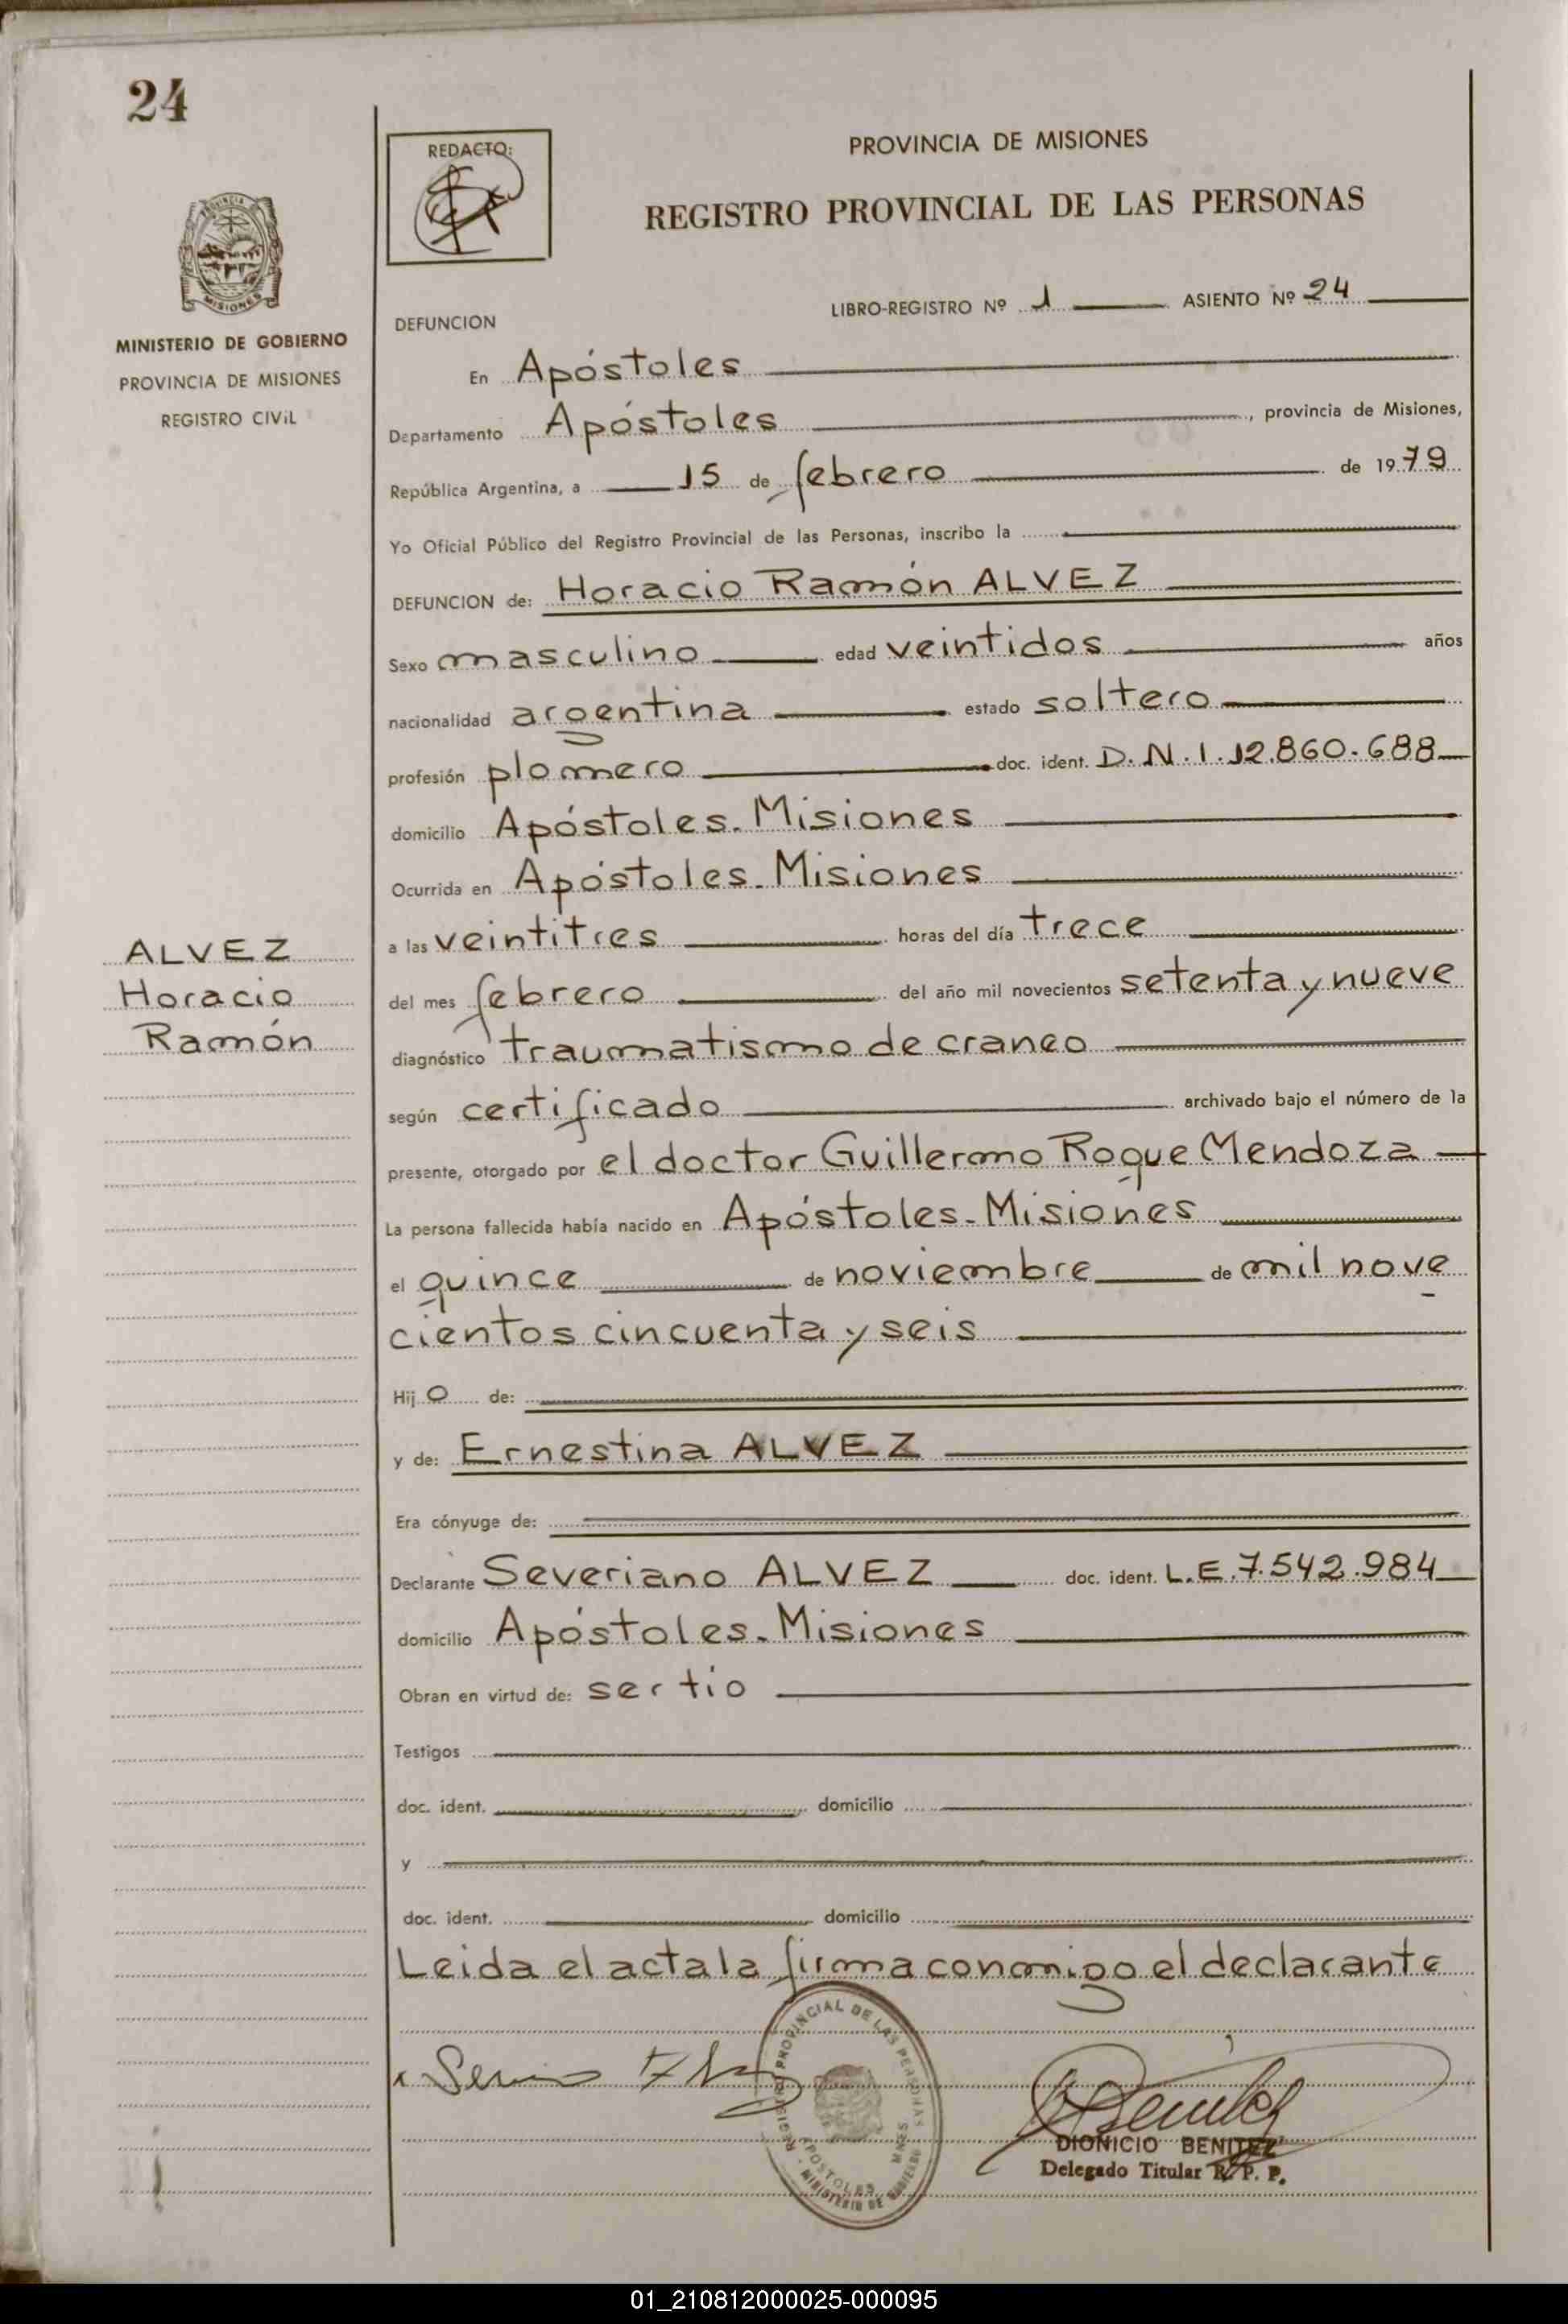 24
REDACTO:
PROVINCIA DE MISIONES
REGISTRO PROVINCIAL DE LAS PERSONAS
PROVINCIA
MISIONES
MINISTERIO DE GOBIERNO
PROVINCIA DE MISIONES
REGISTRO CIVIL
LIBRO-REGISTRO Nº 1 ASIENTO Nº 24
DEFUNCION
En Apóstoles
Departamento Apóstoles, provincia de Misiones,
República Argentina, a 15 de febrero de 1979
Yo Oficial Público del Registro Provincial de las Personas, inscribo la
DEFUNCION de: Horacio Ramón ALVEZ
Sexo masculino edad veintidos años
nacionalidad argentina estado soltero
profesión plomero doc. ident. D.N.I. 12.860.688
domicilio Apóstoles. Misiones
Ocurrida en Apóstoles. Misiones
a las veintitres horas del día trece
del mes febrero del año mil novecientos setenta y nueve
diagnóstico traumatismo de craneo
según certificado archivado bajo el número de la
presente, otorgado por el doctor Guillermo Roque Mendoza
La persona fallecida había nacido en Apóstoles-Misiones
el quince de noviembre de mil nove
cientos cincuenta y seis
Hijo de:
y de: Ernestina ALVEZ
Era cónyuge de:
Declarante Severiano ALVEZ doc. ident. L.E. 7.542.984
domicilio Apóstoles. Misiones
Obran en virtud de: sertio
Testigos
doc. ident. domicilio
y
doc. ident. domicilio
Leida el acta la firma conmigo el declarante
ALVEZ
Horacio
Ramón
REGISTRO PROVINCIAL DE LAS PERSONAS
APOSTOLES MNES
MINISTERIO DE GOBIERNO
DIONICIO BENITEZ
Delegado Titular R. P. P.
01_210812000025-000095